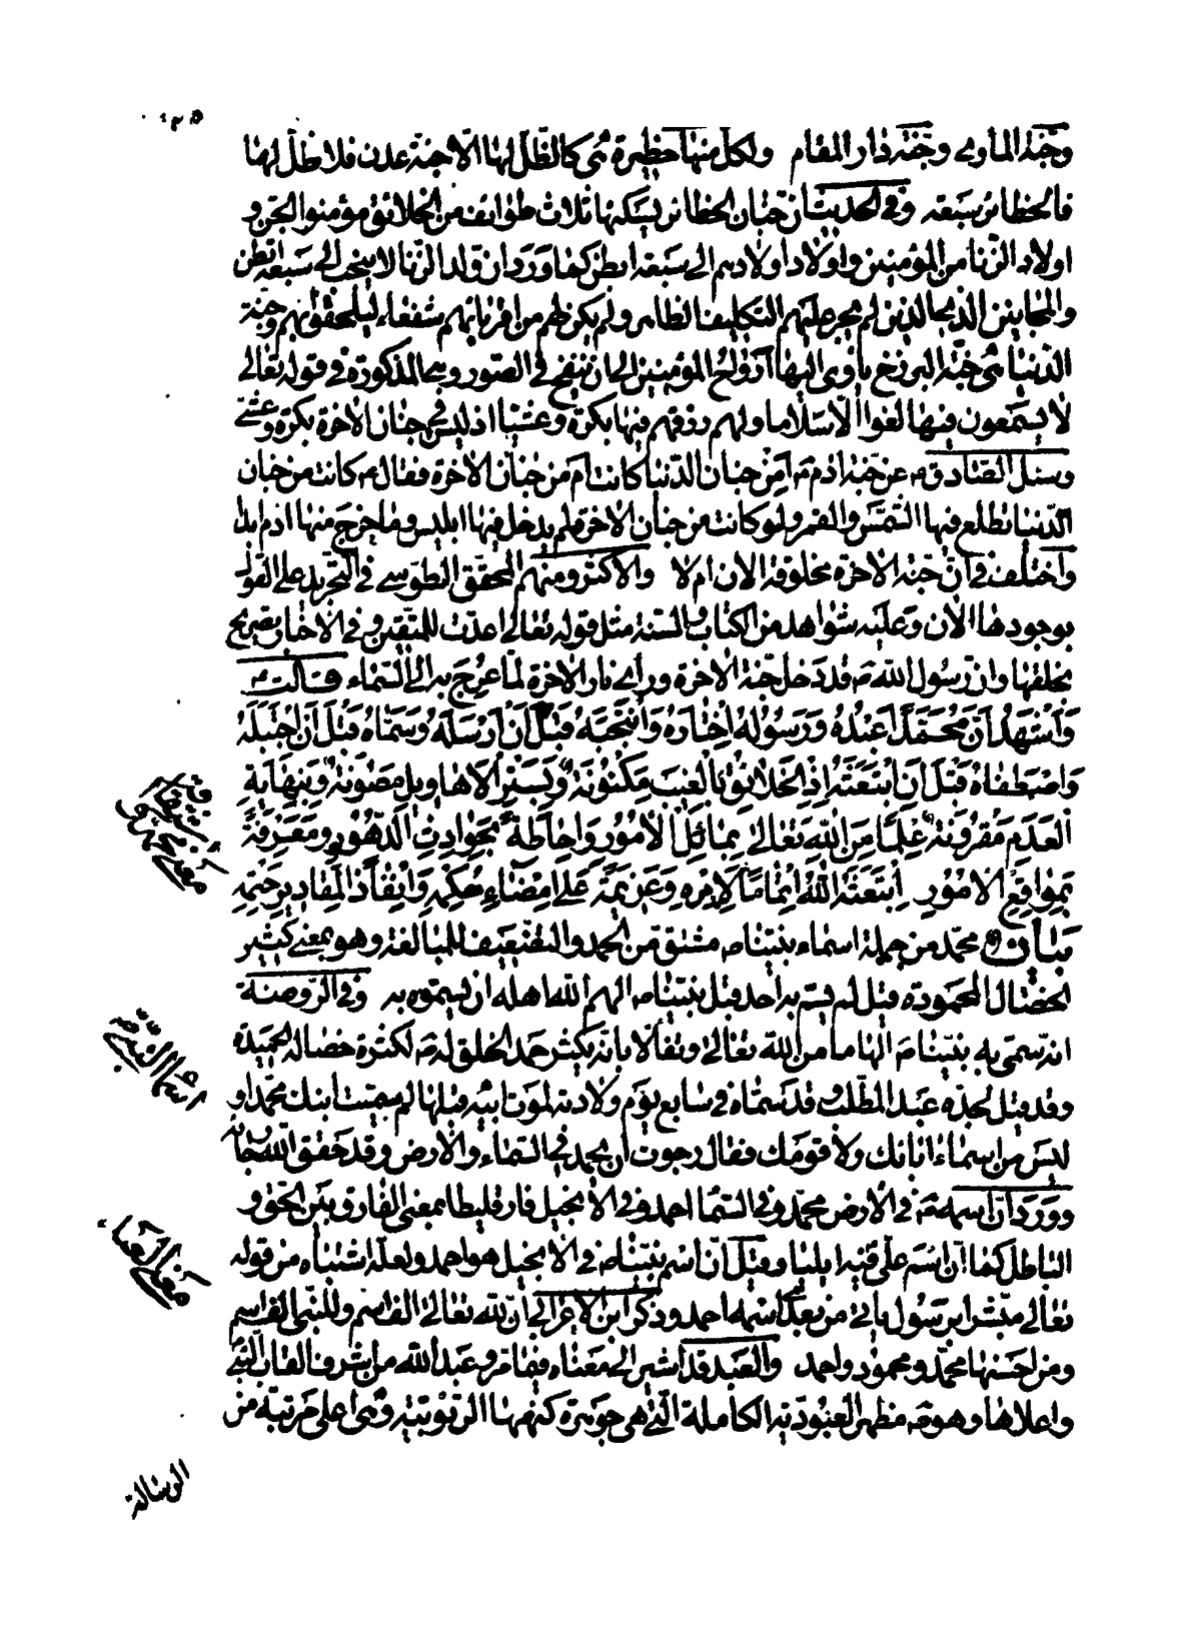 ١٢٥
وجنة المأوى وجنة دار المقام ولكل منها حظيرة هى كالظل لها الا جنة عدن فلا ظل لها
فالحظائر سبعه وفى الحديث ان جنان الحظائر يسكنها ثلاث طوائف من الخلائق مؤمنوا الجن و
اولاد الزنا من المؤمنين واولاد اولادهم الى سبعة ابطن كما ورد ان ولد الزنا لا ينجب الى سبعة ابطن
والمجانين الذين لم يجر عليهم التكليف الظاهر ولم يكن لهم من اقربائهم شفعاء ليلحقوا بهم وجنة
الدنيا هى جنة البرزخ يأوى اليها ارواح المؤمنين الى ان ينفخ فى الصور وهى المذكورة فى قوله تعالى
لا يسمعون فيها لغوا الا سلاما ولهم رزقهم فيها بكرة وعشيا اذ ليس فى جنان الاخرة بكرة وعشى
وسئل الصادق ع عن جنة ادم ع أمن جنان الدنيا كانت ام من جنان الاخرة فقال ع كانت من جنان
الدنيا تطلع فيها الشمس والقمر ولو كانت من جنان الاخرة لم يدخل فيها ابليس وما خرج منها ادم ابدا
واختلف فى ان جنة الاخرة مخلوقة الان ام لا والاكثر ومنهم المحقق الطوسى فى التجريد على القول
بوجودها الان وعليه شواهد من الكتاب والسنة مثل قوله تعالى اعدت للمتقين وفى الاخبار تصريح
بخلقها وان رسول الله ص قد دخل جنة الاخرة وراى نار الاخرة لما عرج به الى السماء قالت ع
وَاَشْهَدُ اَنَّ مُحَمَّدًا عَبْدُهُ وَرَسُولُهُ اِخْتَارَهُ وَانْتَجَبَهُ قَبْلَ اَنْ اَرْسَلَهُ وَسَمَّاهُ قَبْلَ اَنْ اجْتَبَلَهُ
وَاصْطَفَاهُ قَبْلَ اَنِ ابْتَعَثَهُ اِذِ الْخَلَائِقُ بِالْغَيْبِ مَكْنُونَةٌ وَبِسَتْرِ الْاَهَاوِيلِ مَصُونَةٌ وَبِنِهَايَةِ
الْعَدَمِ مَقْرُونَةٌ عِلْمًا مِنَ اللهِ تَعَالٰى بِمَائِلِ الْاُمُورِ وَاِحَاطَةً بِحَوَادِثِ الدُّهُورِ وَمَعْرِفَةً
بِمَوَاقِعِ الْاُمُورِ اِبْتَعَثَهُ اللهُ اِتْمَامًا لِاَمْرِهِ وَعَزِيمَةً عَلٰى اِمْضَاءِ حُكْمِهِ وَاِنْفَاذًا لِمَقَادِيرِ حَتْمِهِ
بيان محمد من جملة اسماء نبينا ص مشتق من الحمد والتضعيف للمبالغة وهو بمعنى كثير
الخصال المحمودة قيل لم يسم به احد قبل نبينا ص الهم الله اهله ان يسموه به وفى الروضة
انه سمى به نبينا ص الهاما من الله تعالى وتفألا بانه يكثر حمد الخلق له ص لكثرة خصاله الحميدة
وقد قيل لجده عبد المطلب وقد سماه فى سابع يوم ولادته لموت ابيه قبلها لم سميت ابنك محمدا و
ليس من اسماء ابائك ولا قومك فقال رجوت ان يحمد فى السماء والارض وقد حقق الله رجائه
وورد ان اسمه ص فى الارض محمد وفى السماء احمد وفى الانجيل فارقليطا بمعنى الفارق بين الحق و
الباطل كما ان اسم على فيه ايليا وقيل ان اسم نبينا ص فى الانجيل هو احمد ولعله اشتباه من قوله
تعالى مبشرا برسول يأتى من بعدى اسمه احمد وذكر ابن الاعرابى ان لله تعالى الف اسم وللنبى الف اسم
ومن احسنها محمد ومحمود واحمد والعبد قد اشير الى معناه فيما مر وعبد الله من اشرف القاب النبى
واعلاها وهو ص مظهر العبودية الكاملة التى هى جوهرة كنهها الربوبية وهى اعلى مرتبة من
اسماء النبى ص
معنى العبد
الرسالة